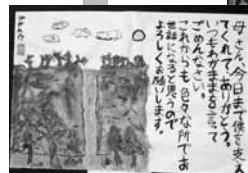 母さん、今日まで使き支え
てくれて、ありがとう。
いつもわがままを言って
ごめんなさい。
これからも色々な所でお
世話になると思うので
よろしくお願いします。